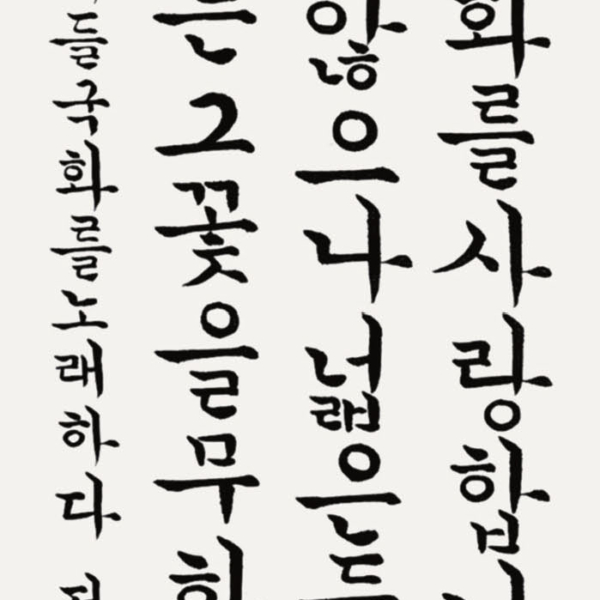 화를사랑합
않으나넓은
그꽃을무
들국화를노래하다